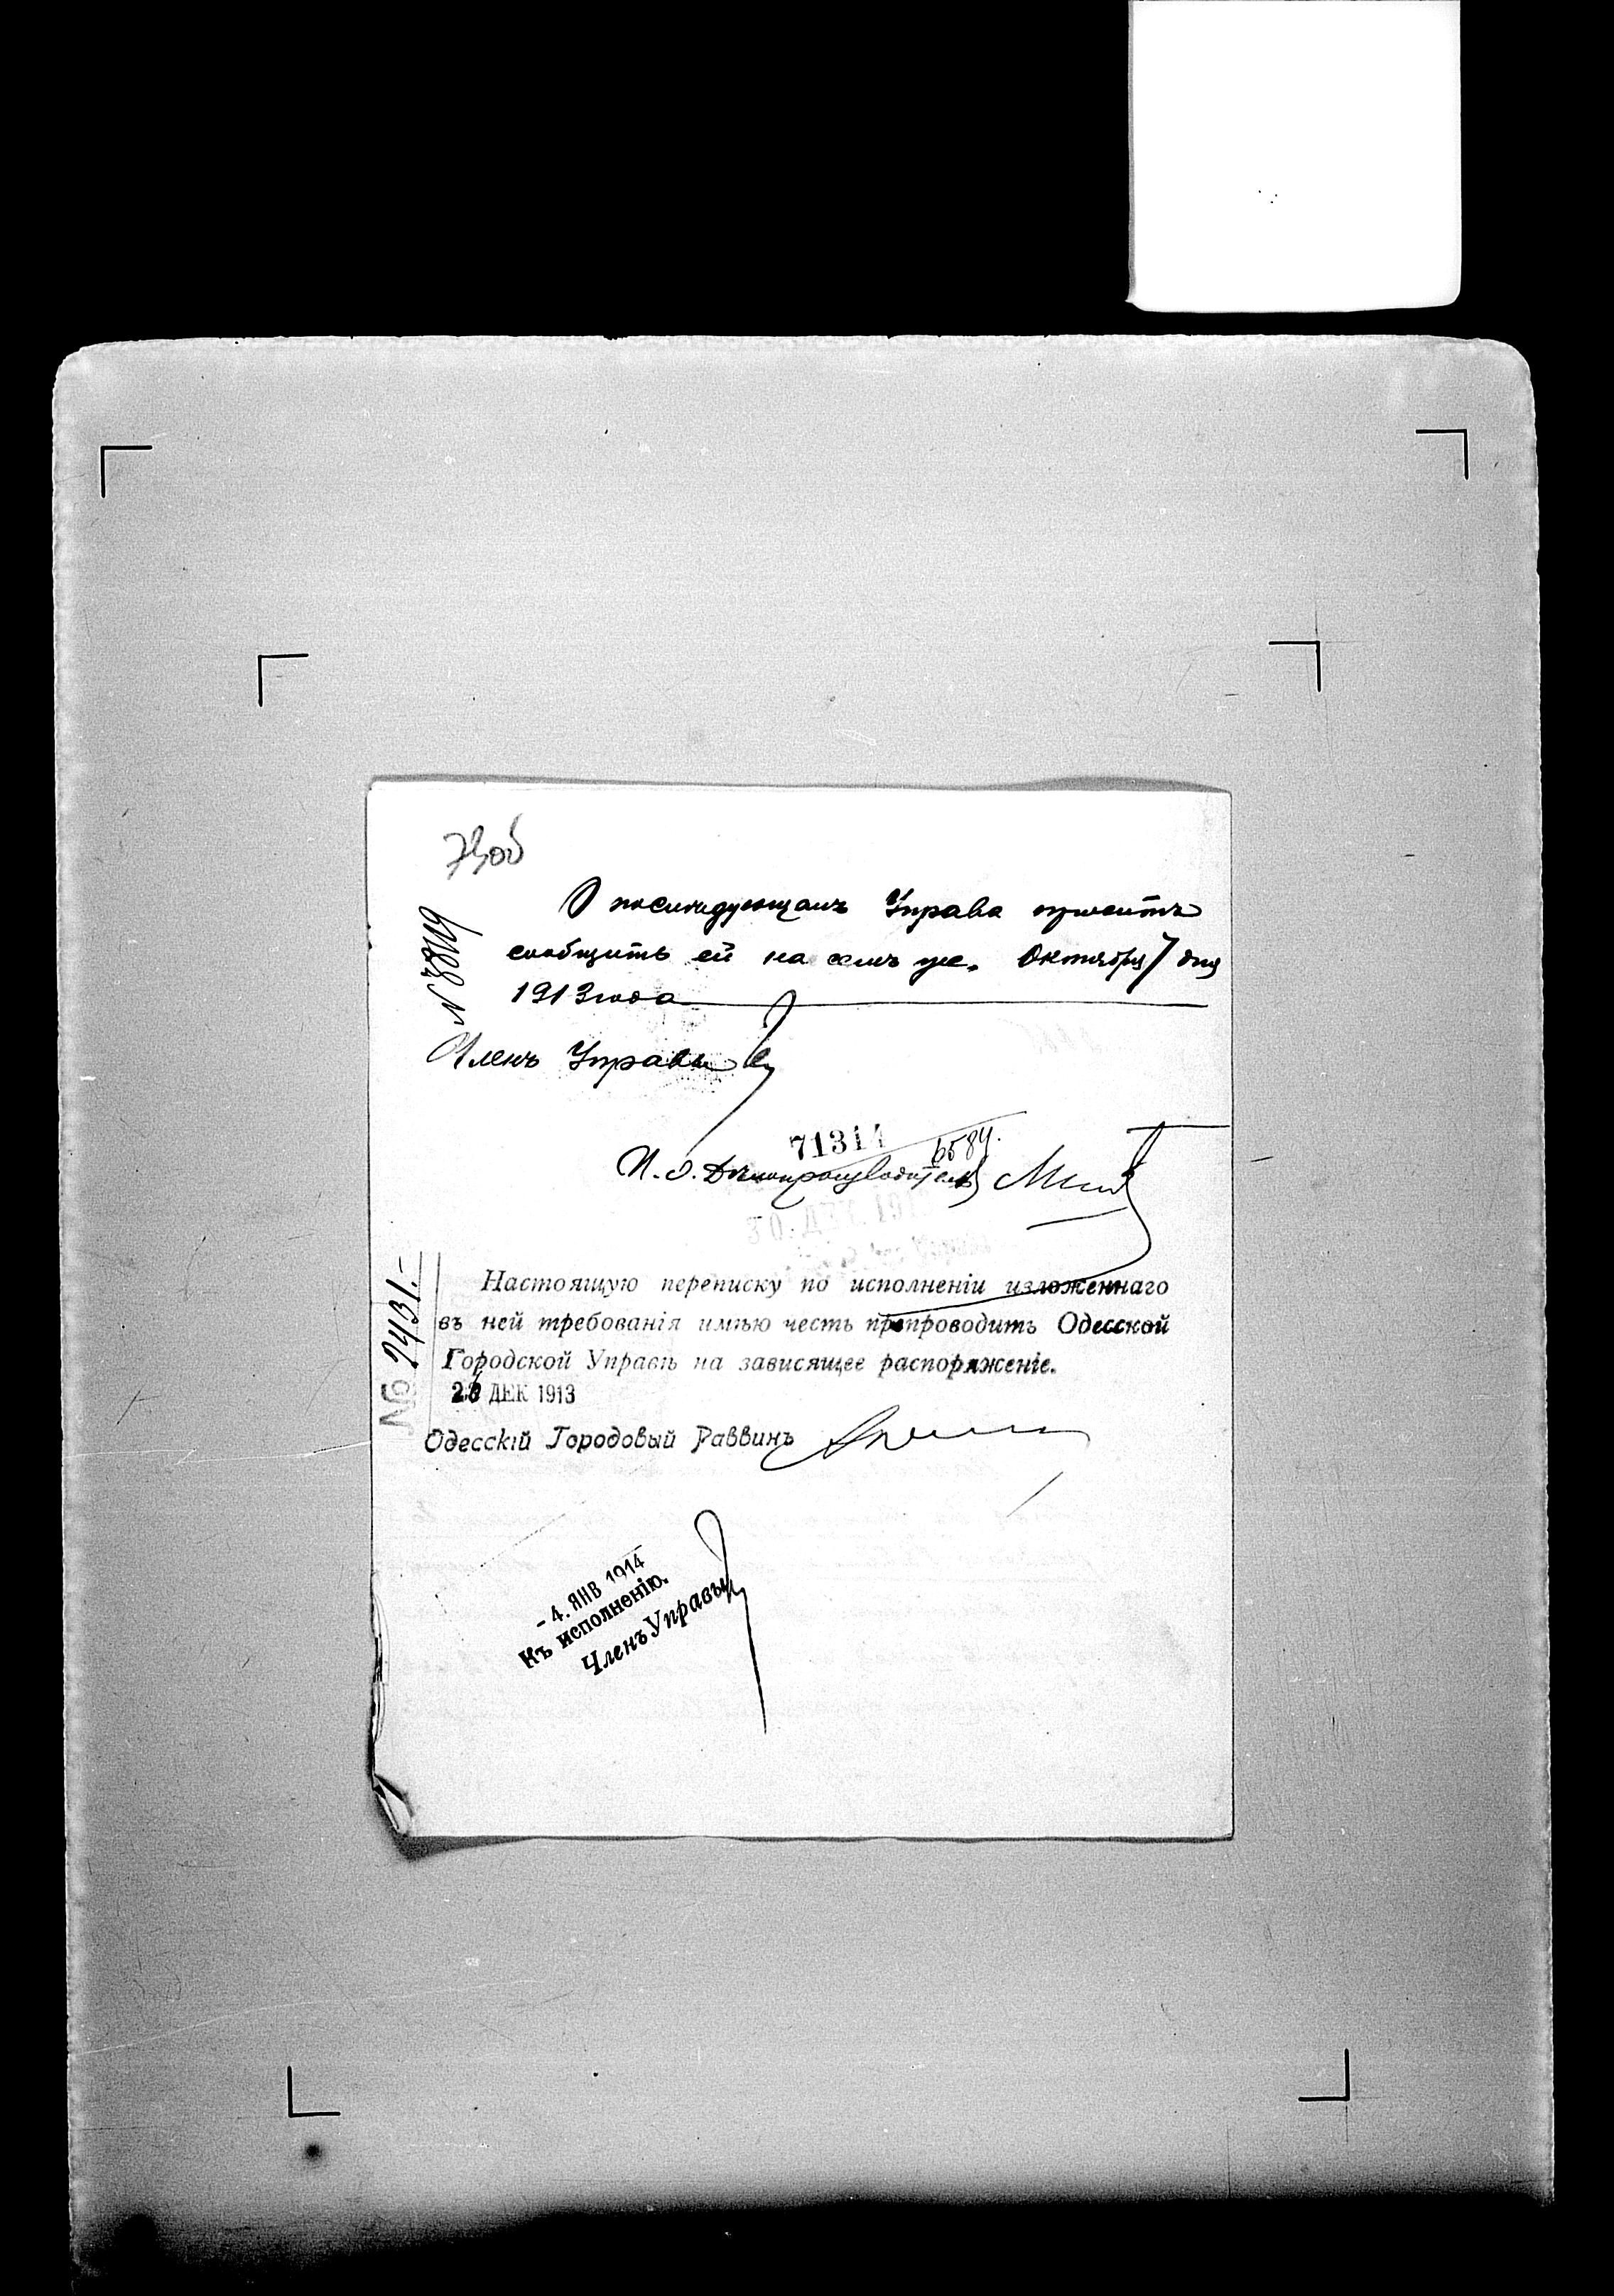 О послѣдующемъ Управа проситъ
сообщить ей на семъ же. Октября 7 дня
1913 года
Членъ Управы
71314
6584.
И. д. Дѣлопроизводителя
№ 2431.-
Настоящую переписку по исполненіи изложеннаго
въ ней требованія имѣю честь препроводить Одесской
Городской Управѣ на зависящее распоряженіе.
ДЕК 1913
Одесскій Городовый Раввинъ
- 4. ЯНВ 1914
Къ исполненію.
Членъ Управы